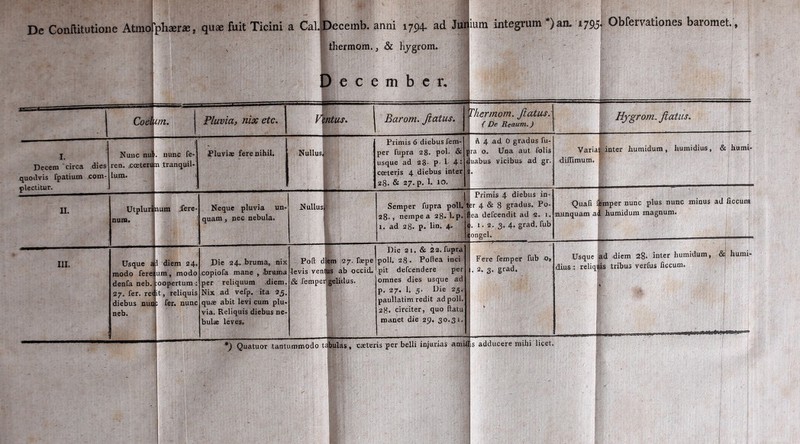 De Conſtitutione Atmoſphæræ, quæ fuit Ticini a Cal. Decemb. anni 1794. ad Junium integrum *) an. 1795. Obſervationes baromet.,
thermom., & hygrom.
December.
Coelum.
Pluvia, nix etc.
Ventus.
Barom. ſtatus.
Thermom. ſtatus.
( De Reaum. )
Hygrom. ſtatus.
I.
Decem circa dies
quodvis ſpatium com-
plectitur.
Nunc nub. nunc ſe-
ren. cœterum tranquil-
lum.
Pluviæ fere nihil.
Nullus.
Primis 6 diebus ſem-
per ſupra 28. pol. &
usque ad 28. p. l. 4:
cœteris 4 diebus inter
28. & 27. p. l. 10.
A 4 ad 0 gradus ſu-
pra 0. Una aut ſolis
duabus vicibus ad gr.
Variat inter humidum, humidius, & humi-
diſſimum.
II.
Utplurimum ſere-
num.
Neque pluvia un-
quam, nec nebula.
Nullus.
Semper ſupra poll.
28., nempe a 28. l. p.
1. ad 28. p. lin. 4.
Primis 4 diebus in-
ter 4 & 8 gradus. Po-
ſtea deſcendit ad 2. 1.
0. 1. 2. 3. 4. grad. ſub
congel.
Quaſi ſemper nunc plus nunc minus ad ſiccum
nunquam ad humidum magnum.
III.
Usque ad diem 24.
modo ſerenum, modo
denſa neb. coopertum:
27. ſer. redit, reliquis
diebus nunc ſer. nunc
neb.
Die 24. bruma, nix
copioſa mane, bruma
per reliquum diem.
Nix ad veſp. ita 25.
quæ abit levi cum plu-
via. Reliquis diebus ne-
bulæ leves.
Poſt diem 27. ſæpe
levis ventus ab occid.
& ſemper gelidus.
Die 21. & 22. ſupra
poll. 28. Poſtea inci-
pit deſcendere per
omnes dies usque ad
p. 27. l. 5. Die 25.
paullatim redit ad poll.
28. circiter, quo ſtatu
manet die 29. 30. 31.
Fere ſemper ſub 0,
1. 2. 3. grad.
Usque ad diem 28. inter humidum, & humi-
dius: reliquis tribus verſus ſiccum.
*) Quatuor tantummodo tabulas, cæteris per belli injurias amiſſis adducere mihi licet.